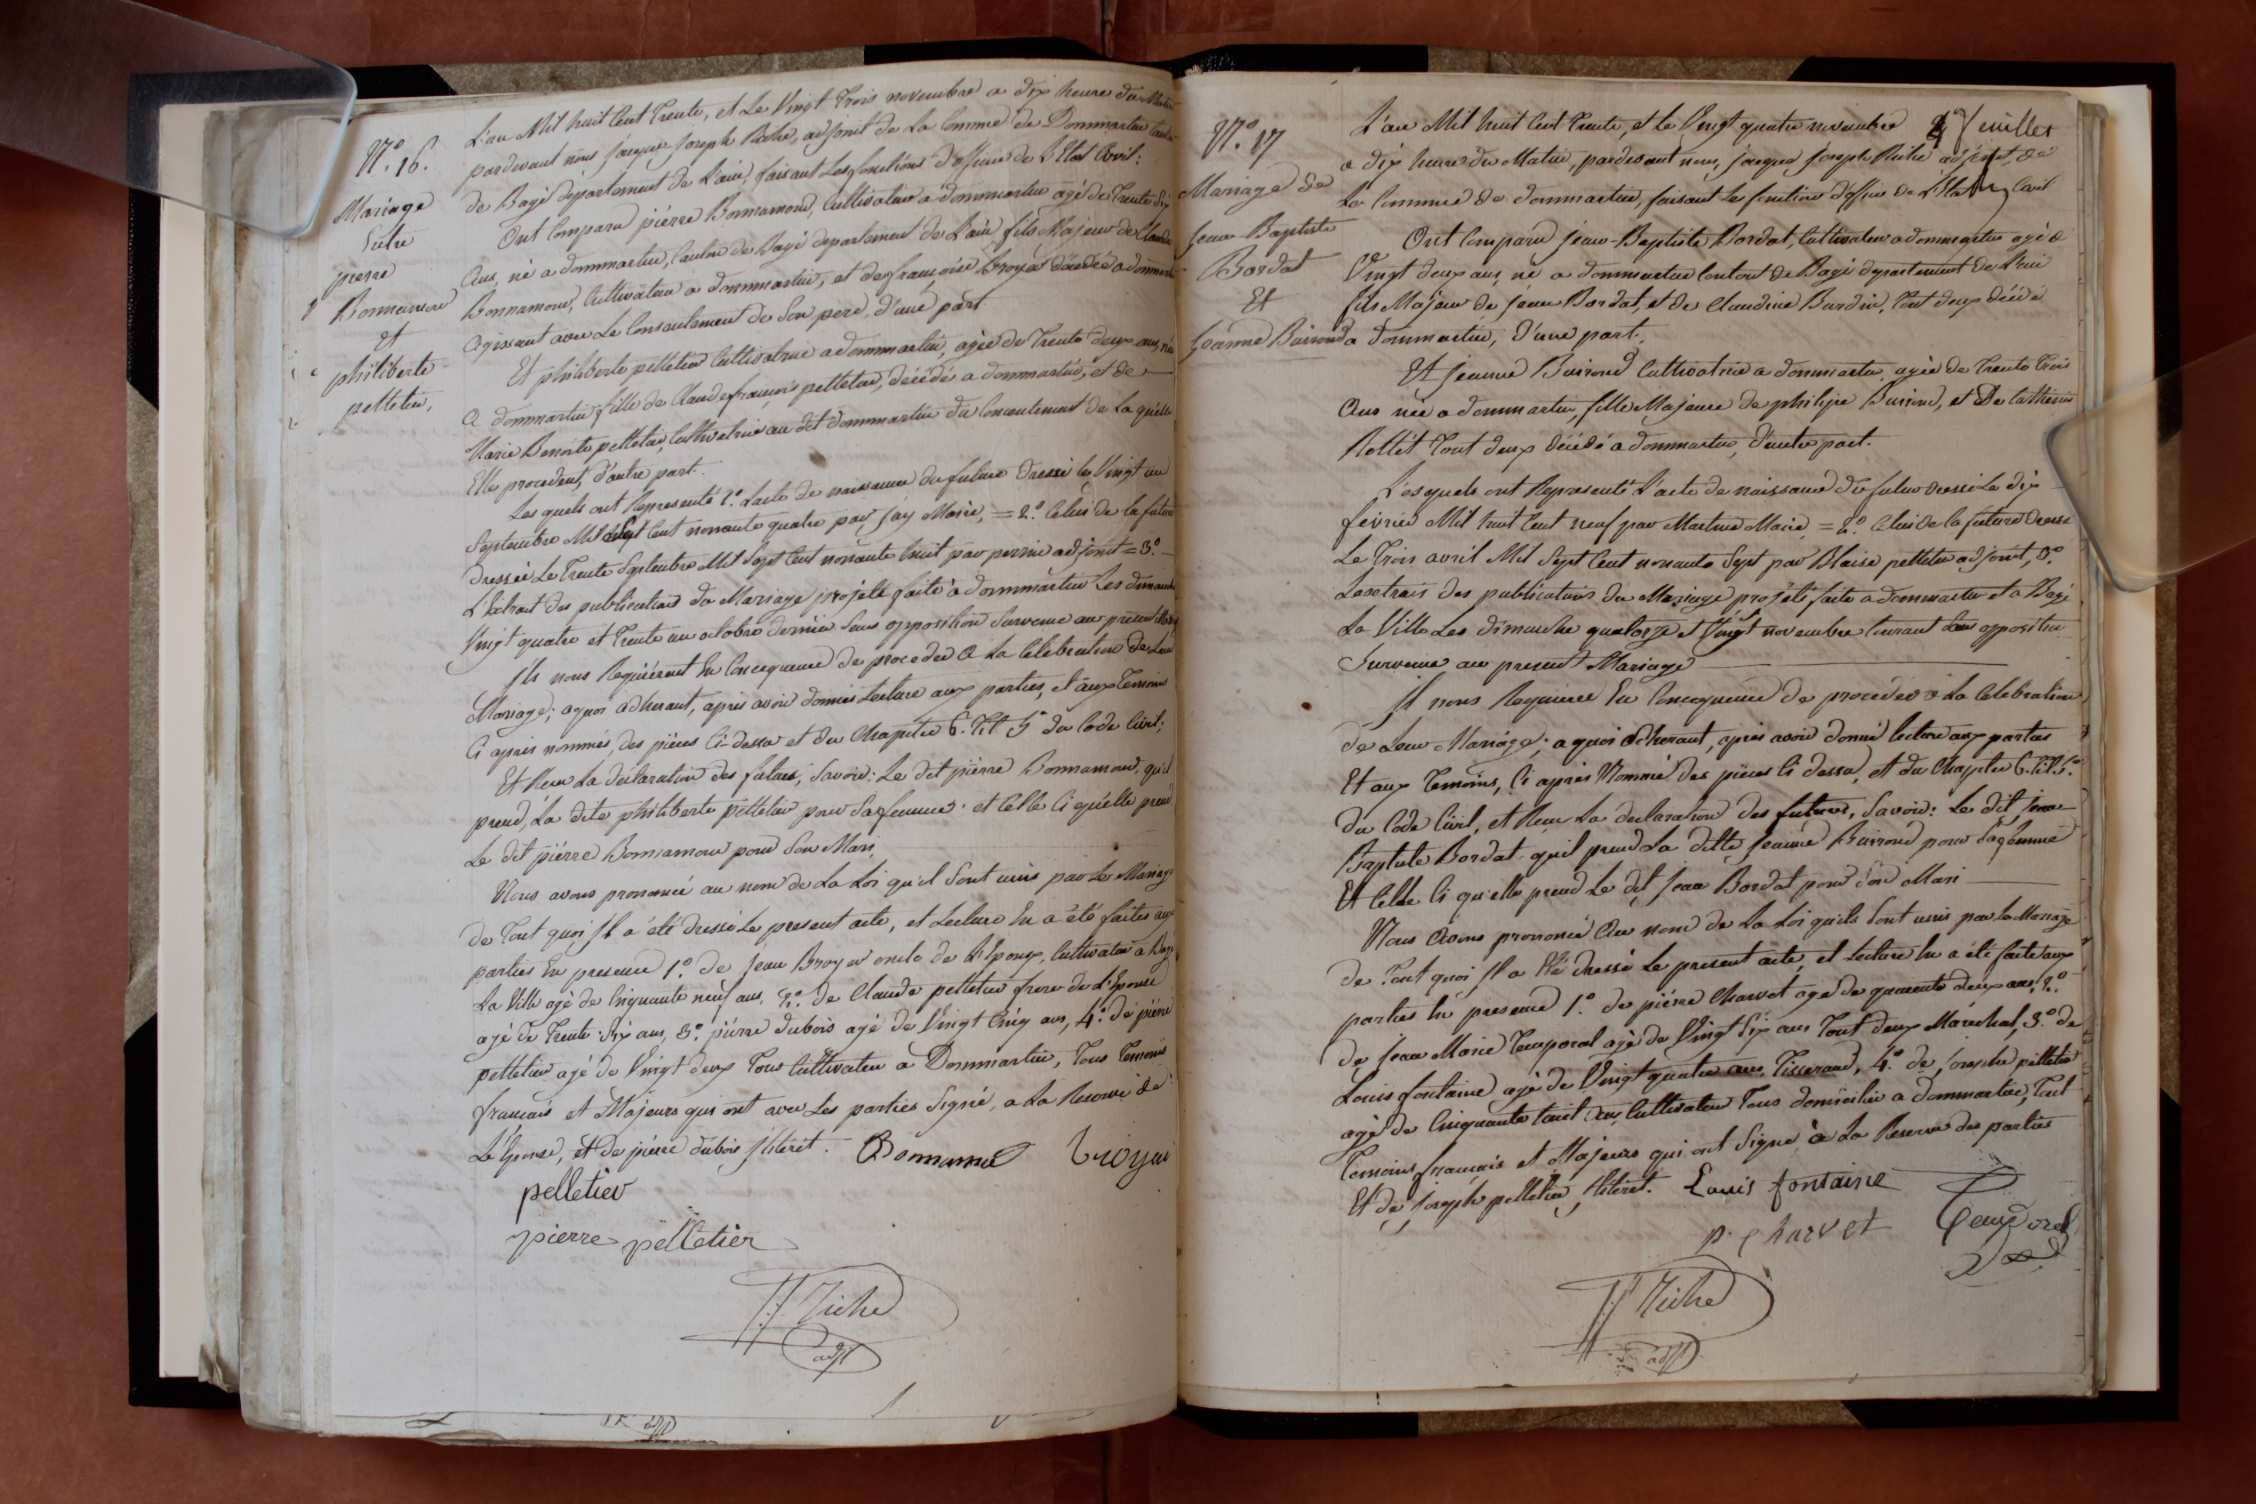 N.° 16.
Mariage
Entre
pierre
Bonnamour
et
philiberte
pelletier,
L'an Mil huit Cent Trente, et Le Vingt Trois novembre a dix heure du Matin
pardevant nous Jacques Joseph Riche, adjoint de La Comme de Dommartin Canton
de Bagé departement de L'ain, faisant Les fonctions d'officier de L'Etat Civil:
Ont Comparu piérre Bonnamour, Cultivateur a dommartin agé de Trente Six
Ans, né a dommartin, Canton de Bagé departement de L'ain fils Majeur de Claude
Bonnamour, Cultivateur a dommartin, et de françoise Broyer décédée a dommartin
agissant avec Le Consentement de Son pere, d'une part
Et philiberte pelletier Cultivatrice a dommartin, agée de Trente deux ans, née
a dommartin fille de Claude françois pelletier, décédé a dommartin, et de
Marie Benoite pelletier, Cultivatrice au dit dommartin du Consentement de La quelle
Elle procedent, d'autre part.
Les quels ont Representé 1.° L'acte de naissance du future dressé le Vingt un
Septembre Mil Sept Cent nonante quatre par Jay Maire, = 2.° Celui de la future
dressée Le Trente Septembre Mil Sept Cent nonante huit par perrin adjoint = 3.°
L'Extrait des publications du Mariage projété faite à dommartin Les dimanche
Vingt quatre et Trente un octobre dernier Sans opposition Survenue au présent Mariage
Ils nous Requièrent En Consequence de proceder a La Célébration de Leur
Mariage; aquoi adherant, après avoir donnés Lecture aux parties, et aux Temoins
Ci après nommés, des pièces Ci-dessu et du Chapitre 6. Tit 5 du Code Civil;
Et Reçu La déclaration des futurs, Savoir: Le dit piérre Bonnamour, qu'il
prend, La dite philiberte pelletier pour Sa femme et Celle Ci qu'elle prend
Le dit piérre Bonnamour pour Son Mari,
Nous avons prononcé au nom de La Loi qu'il Sont unis par Le Mariage
de Tout quoi Il a été dressé Le present acte, et Lecture En a été faites aux
parties En presence 1.° de Jean Broyer oncle de L'Epoux, Cultivateur a Bagé
La Ville agé de Cinquante neuf ans. 2.° de Claude pelletier frere de L'Epouse
agé de Trente Six ans, 3.° piérre dubois agé de Vingt Cinq ans, 4.° de piérre
pelletier agé de Vingt deux Tous Cultivateur a Dommartin, Tous Temoins
français et Majeurs qui ont avec Les parties Signé, a La Reserve de
L'Epouse, et de piérre dubois Illitéret. Bonnamour Broyer
pelletier
pierre pelletier
JJ Riche
adjt
4 feuillet
N.° 17
Mariage de
Jean Baptiste
Bordat
Et
Jeanne Buiron
L'an Mil huit Cent Trente, et le Vingt quatre novembre
a dix heure du Matin, pardevant nous, Jacques Joseph Riche adjoint, de
La Commue de dommartin, faisant Les fonctions d'officier de L'Etat Civil
Ont Comparu Jean-Baptiste Bordat, Cultivateur a dommartin agé de
Vingt deux ans, né a dommartin Canton de Bagé departement de L'ain
fils Majeur de Jean Bordat, et de Claudine Burdin, Tout deux décédé
a dommartin, d'une part.
Et Jeanne Buirond Cultivatrice a dommartin, agée de Trente Trois
Ans née a dommartin, fille Majeure de philipe Buirond, et De Cathérine
Rollét Tout deux décédé a dommartin, d'autre part.
Lesquels ont Representé L'acte de naissance du futur dressé Le dix
fevrier Mil huit Cent neuf par Martine Maire, = 2.° Celui de la future dressé
Le Trois avril Mil Sept Cent nonante Sept par Blaise pelletier adjoint, 3.°
Lesextrais des publications du Mariage projété faite a dommartin et a Bagé
La Ville Les dimanche quatorze et Vingt novembre Courant Sans opposition
Survenue au present Mariage
Il nous Requiere En Consequence de proceder à La Célébration
de Leur Mariage; a quoi adherant, après avoir donné lecture aux parties
Et aux Temoins, Ci après Nommé des pièces Ci dessu, et du Chapitre 6. Tit. 5.°
du Code Civil, et Reçu La declaration des futurs, Savoir: Le dit Jean
Baptiste Bordat qu'il prend La ditte Jeanne Buirond pour Sa femme
Et Celle Ci qu'elle prend Le dit Jean Bordat pour Son Mari
Nous Avons prononcé Au nom de La Loi qu'ils Sont unis par le Mariage
de Tout quoi Il a Été dressé Le present acte, et Lecture En a été faite aux
parties En presence 1.° de piérre Charvet agé de quarente deux ans, 2.°
de Jean Marie Temporal agé de Vingt Six ans Tout deux Maréchal, 3.° de
Louis fontaine agé de Vingt quatre ans, Tisserand, 4.° de Joseph pelletier
agé de Cinquante huit ans, Cultivateur Tous domicilié a dommartin, Tout
Temoins français et Majeurs qui ont Signé à La Reserve des parties
Et de Joseph pelletier, Illiteret. Louis fontaine
p. charvet Temporal
JJ Riche
adjt